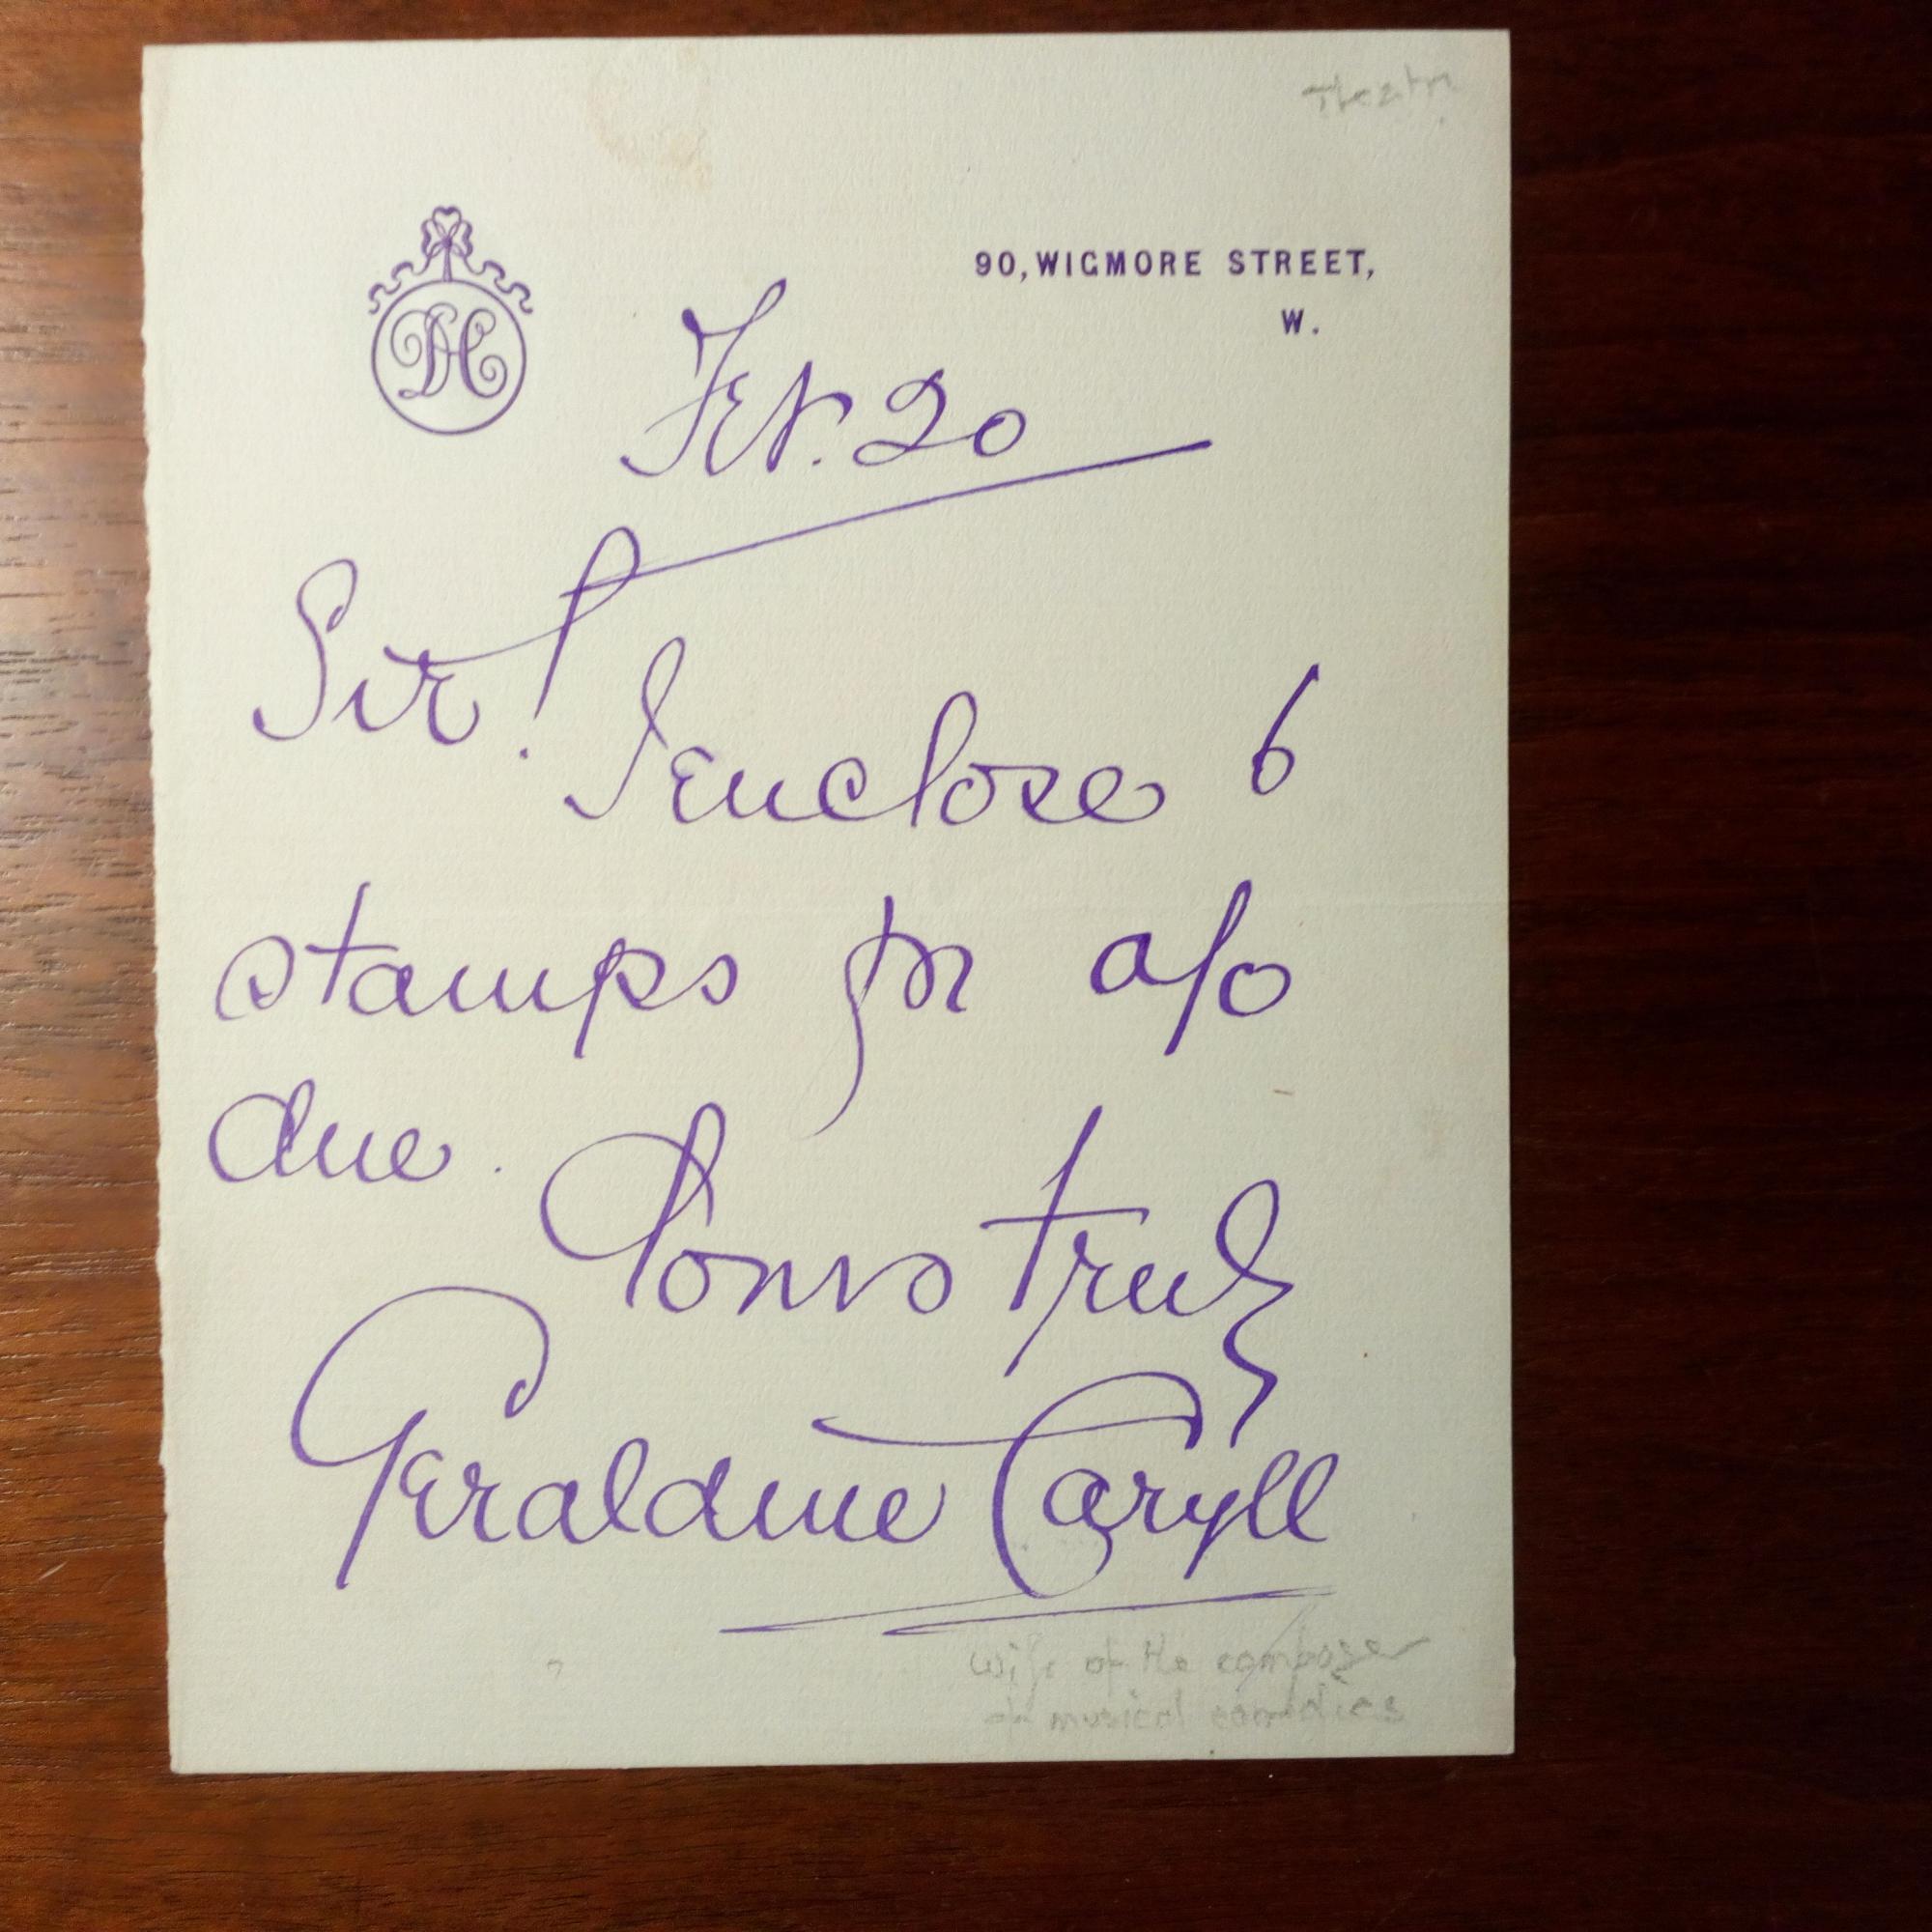 Theatre
90, WIGMORE STREET,
W.
Feb. 20
Sir!
I enclose 6
stamps for a/o
due.
Yours truly
Geraldine Caryll
wife of the composer
of musical comedies